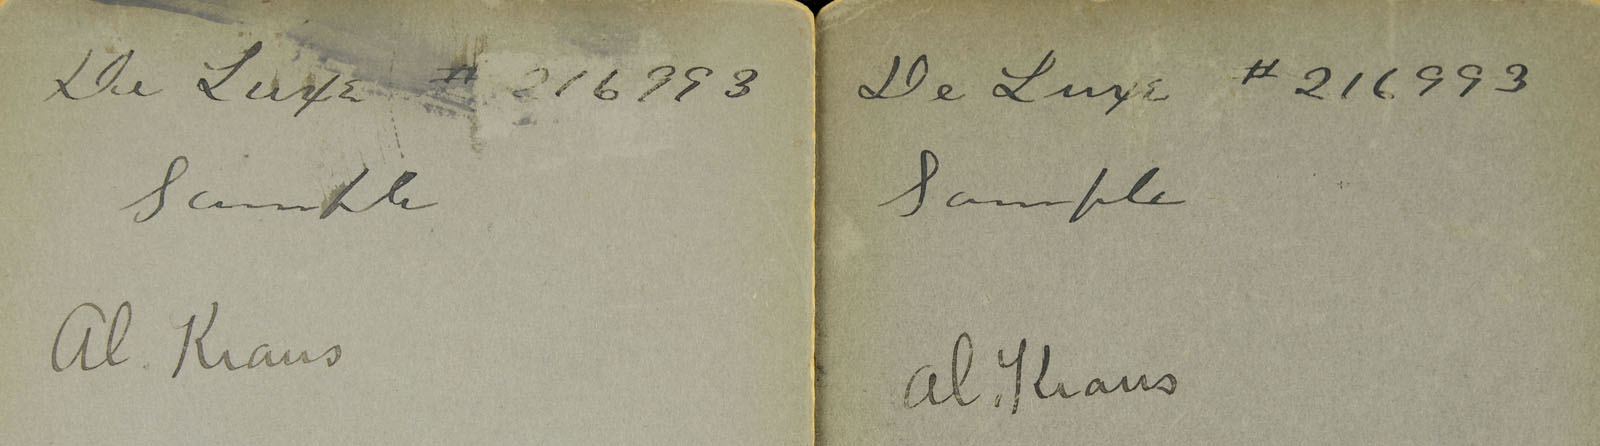 De Luxe # 216993
Sample
Al. Kraus
De Luxe # 216993
Sample
Al. Kraus